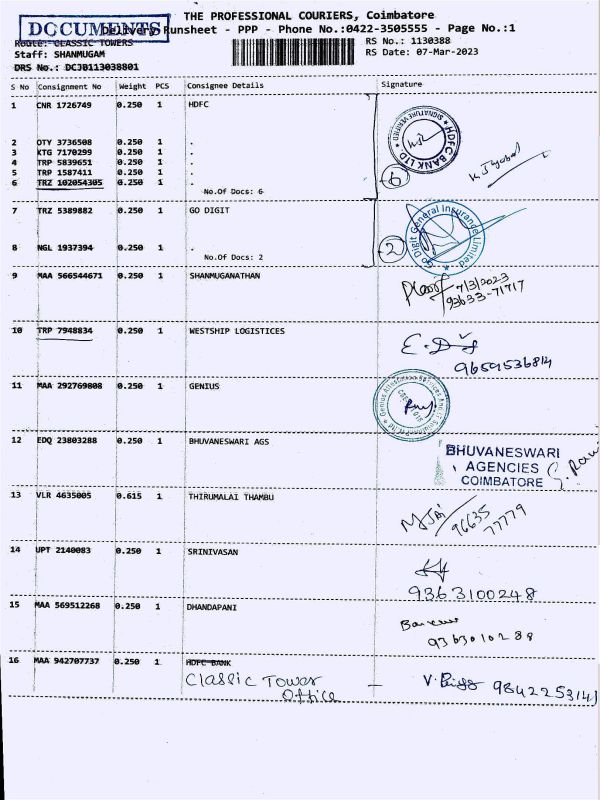 THE PROFESSIONAL COURIERS, Coimbatore
DOCUMENTS
Delivery Runsheet - PPP - Phone No.:0422-3505555 - Page No.:1
Route: CLASSIC TOWERS
RS No.: 1130388
Staff: SHANMUGAM
RS Date: 07-Mar-2023
DRS No.: DCJB113038801
S No Consignment No Weight PCS Consignee Details Signature
1 CNR 1726749 0.250 1 HDFC
HDFC BANK LTD.
SIGNATURE VERIFIED
2 OTY 3736508 0.250 1 .
3 KTG 7170299 0.250 1 .
4 TRP 5839651 0.250 1 .
5 TRP 1587411 0.250 1 .
6 TRZ 102054305 0.250 1 .
No.Of Docs: 6
6
7 TRZ 5389882 0.250 1 GO DIGIT
Go Digit General Insurance Limited
8 NGL 1937394 0.250 1 .
No.Of Docs: 2
2
9 MAA 566544671 0.250 1 SHANMUGANATHAN
7/3/2023
93633-71717
10 TRP 7948834 0.250 1 WESTSHIP LOGISTICES
9659536814
11 MAA 292769808 0.250 1 GENIUS
12 EDQ 23803288 0.250 1 BHUVANESWARI AGS
BHUVANESWARI
AGENCIES
COIMBATORE
13 VLR 4635005 0.615 1 THIRUMALAI THAMBU
96635
77779
14 UPT 2140083 0.250 1 SRINIVASAN
9363100248
15 MAA 569512268 0.250 1 DHANDAPANI
9363010288
16 MAA 942707737 0.250 1 HDFC BANK
Classic Tower
Office
9842253141